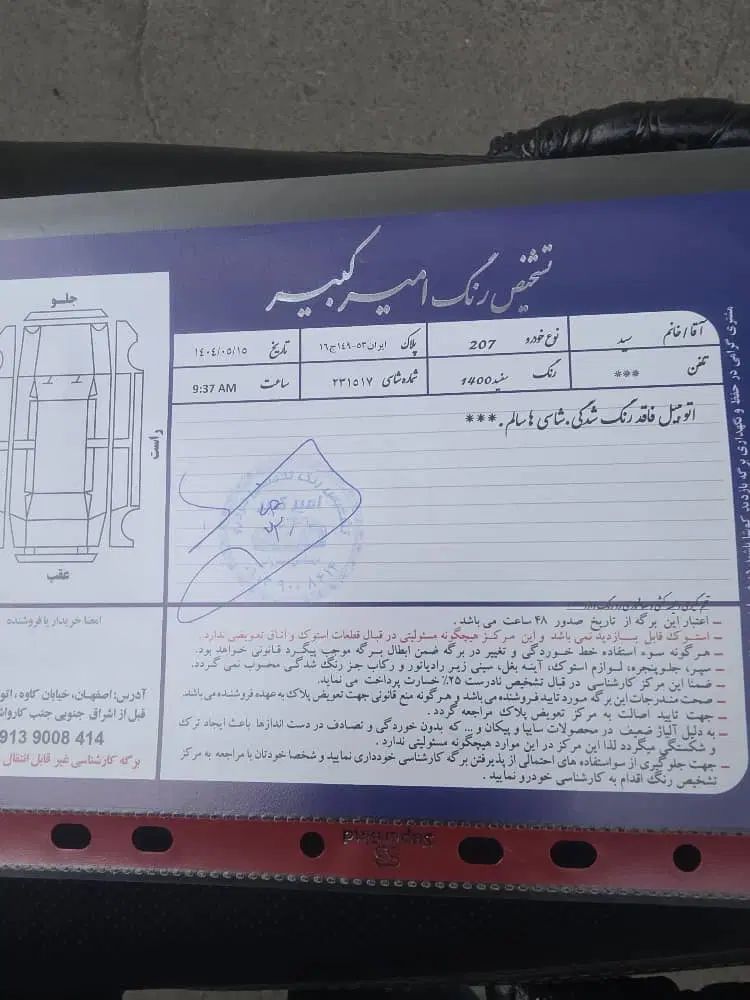 تشخیص رنگ امیرکبیر
آقا/خانم سید نوع خودرو 207 پلاک ایران ۵۳-۱۴۹ج۱۶ تاریخ ۱۴۰٤/۰۵/۱۵
تلفن *** رنگ سفید1400 شماره شاسی ۲۳۱۵۱۷ ساعت 9:37 AM
اتومبیل فاقد رنگ شدگی.شاسی ها سالم.***
جلو
راست
عقب
امضا خریدار یا فروشنده
آدرس: اصفهان، خیابان کاوه، اتو
قبل از اشراق جنوبی جنب کاروا
913 9008 414
برگه کارشناسی غیر قابل انتقال
– اعتبار این برگه از تاریخ صدور ۴۸ ساعت می باشد.
– استوک قابل بازدید نمی باشد و این مرکز هیچگونه مسئولیتی در قبال قطعات استوک و اتاق تعویضی ندارد.
– هرگونه سوء استفاده خط خوردگی و تغییر در برگه ضمن ابطال برگه موجب پیگرد قانونی خواهد بود.
– سپر، جلوپنجره، لوازم استوک، آینه بغل، سینی زیر رادیاتور و رکاب جز رنگ شدگی محسوب نمی گردد.
– ضمنا این مرکز کارشناسی در قبال تشخیص نادرست ۲۵٪ خسارت پرداخت می نماید.
– صحت مندرجات این برگه مورد تایید فروشنده می باشد و هرگونه منع قانونی جهت تعویض پلاک به عهده فروشنده می باشد.
– جهت تایید اصالت به مرکز تعویض پلاک مراجعه گردد.
– به دلیل آلیاژ ضعیف در محصولات سایپا و پیکان و... که بدون خوردگی و تصادف در دست اندازها باعث ایجاد ترک
و شکستگی میگردد لذا این مرکز در این موارد هیچگونه مسئولیتی ندارد.
– جهت جلوگیری از سواستفاده های احتمالی از پذیرفتن برگه کارشناسی خودداری نمایید و شخصا خودتان با مراجعه به مرکز
تشخیص رنگ اقدام به کارشناسی خودرو نمایید.
مشتری گرامی در حفظ و نگهداری برگه بازدید